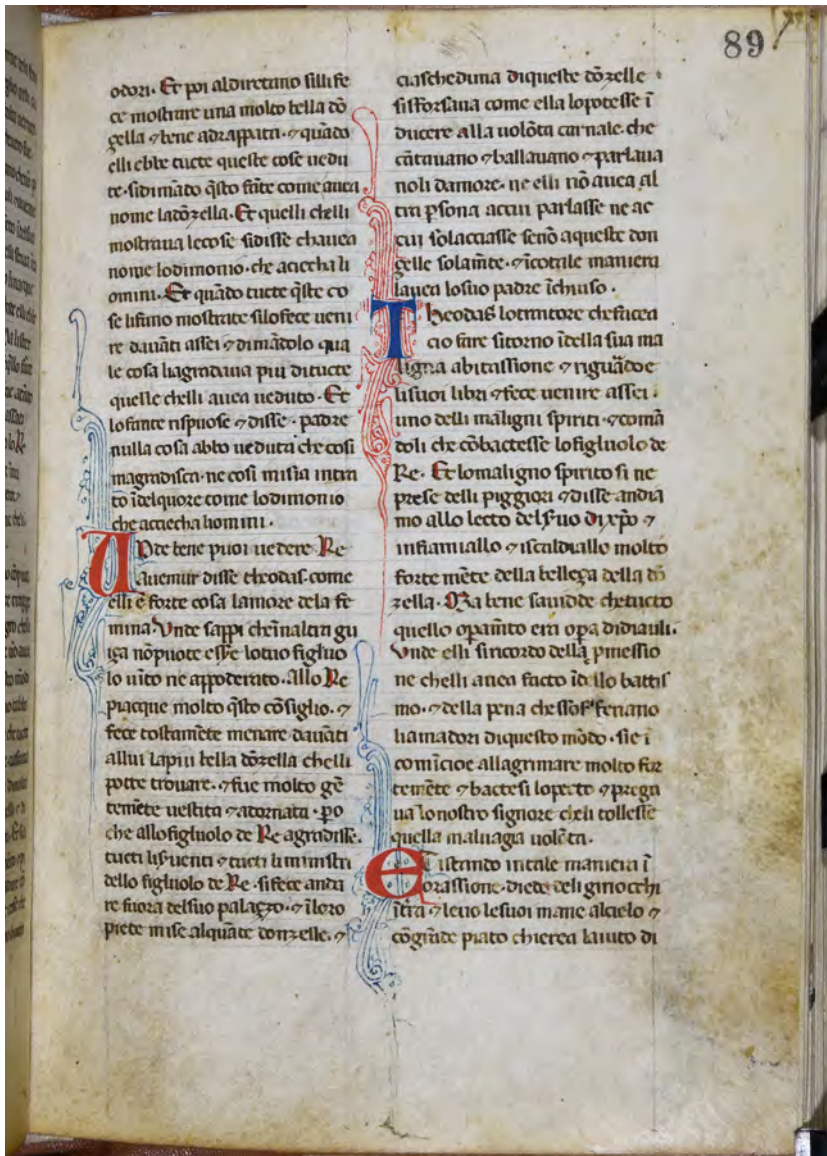 89
odori. Et poi aldiretano sillife
ce mostrare una molto bella dō
çella ⁊ bene adrappata. ⁊ quādo
elli ebbe tucte queste cose uedu
te. sidimādo q̄sto fāte come auea
nome ladōzella. Et quelli chelli
mostraua lecose sidisse chauea
nome lodimonio. che aciecha li
omini. Et quādo tucte q̄ste co
se lifuro mostrate silofece ueni
re dauāti assei ⁊ dimādolo qua
le cosa liagradaua piu ditucte
quelle chelli auea ueduto. Et
lofante rispuose ⁊ disse. padre
nulla cosa abbo ueduta che cosi
magradisca. ne cosi misia intra
to īdelquore come lodimonio
che acciecha homini.
Unde bene puoi uedere Re
auemur disse theodas. come
elli ē forte cosa lamore dela fe
mina. Vnde sappi cheīnaltra gu
iça nōpuote esse lotuo figluo
lo uīto ne appoderato. Allo Re
piacque molto q̄sto cōsiglio. ⁊
fece tostamēte menare dauāti
allui lapiu bella dōzella chelli
potte trouare. ⁊ fue molto gē
temēte uestita ⁊ adornata. ꝑo
che allofigluolo de Re agradisse.
tucti lisuenti ⁊ tucti liministri
dello figluolo de Re. sifece anda
re fuora delsuo palaçzo. ⁊ īloro
piete mise alquāte donzelle. ⁊
ciascheduna diqueste dōzelle
sisforsaua come ella lopotesse ī
ducere alla uolōta carnale. che
cātauano ⁊ ballauano ⁊ parlaua
noli damore. ne elli nō auea al
tra ꝑsona accui parlasse ne ac
cui solacciasse senō aqueste don
çelle solamēte. ⁊ īcotale maniera
lauea losuo padre īchiuso.
Theodas lotraitore chefacea
cio fare sitorno īdella sua ma
ligna abitassione ⁊ riguādoe
lisuoi libri ⁊ fece uenire assei.
uno delli māligni spiriti. ⁊ comā
doli che cōbactesse lofigluolo de
Re. Et lomaligno spirito si ne
prese delli piggiori ⁊ disse andia
mo allo lecto delsuo dixp̄o ⁊
infiamiallo ⁊ iscaldiallo molto
forte mēte della belleça della dō
zella. Ma bene sauidde chetucto
quello oꝑamēto era oꝑa didiauli.
Vnde elli siricordo della p̄messio
ne chelli auea facto īdello battis
mo. ⁊ della pena chessofferano
liamadori diquesto mōdo. sie ī
comīcioe allagrimare molto for
temēte ⁊ bactesi lopecto ⁊ prega
ua lonostro signore cheli tollesse
quella maluagia uolēta.
Et istando intale maniera ī
orassione. diede deli ginocchi
ītra ⁊ leuo lesuoi mane alcielo ⁊
cōgrāde piato chierea laiuto di